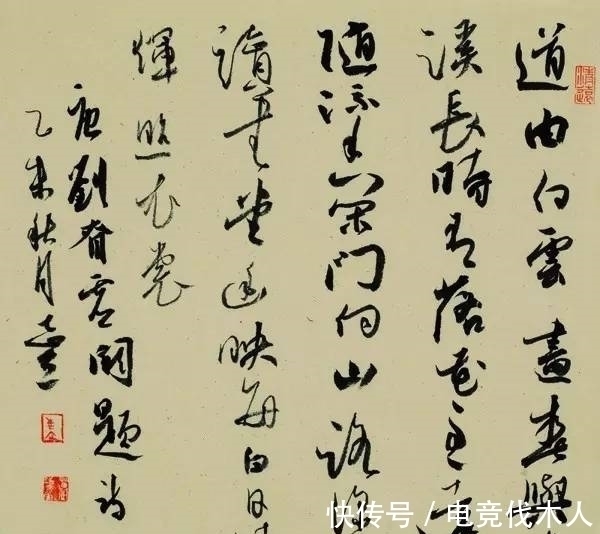 道由白雲盡春與
溪長時有落花至遠
隨流水香閑門向山路深
讀書堂幽映每白日
輝照衣裳
唐劉昚虛闕題詩
乙未秋月
快传号 / 电竞伐木人